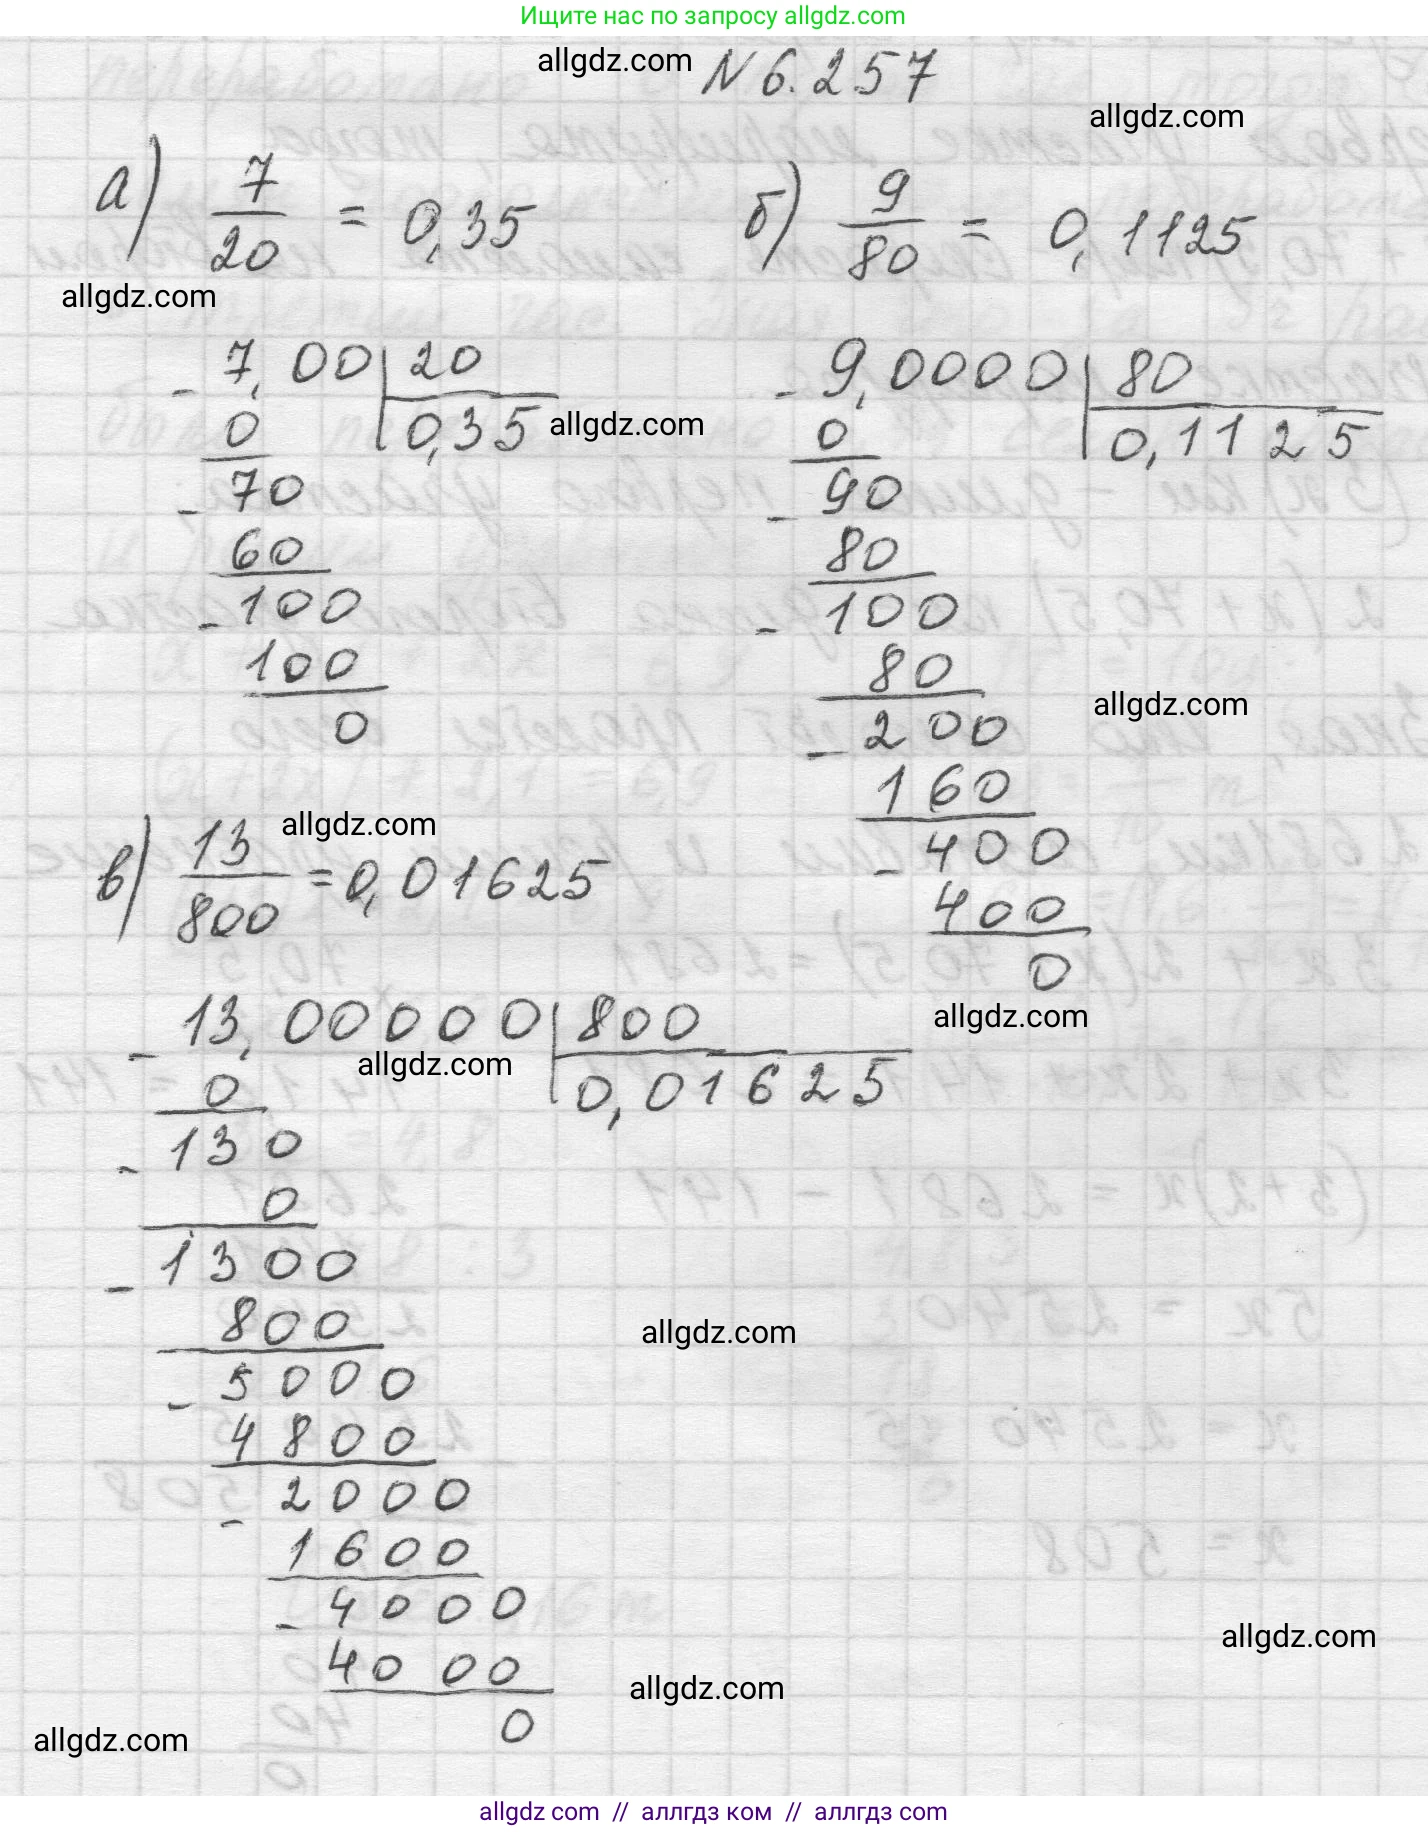 Ищите нас по запросу allgdz.com
allgdz.com
N 6.257
allgdz.com
а) 7/20 = 0,35
б) 9/80 = 0,1125
allgdz.com
- 7,00 | 20
0 | 0,35
allgdz.com
- 70
60
- 100
100
0
- 9,0000 | 80
0 | 0,1125
- 90
80
- 100
80
allgdz.com
- 200
160
- 400
400
0
allgdz.com
allgdz.com
в) 13/800 = 0,01625
- 13,00000 | 800
allgdz.com
0 | 0,01625
- 130
0
- 1300
800
allgdz.com
- 5000
4800
- 2000
1600
- 4000
4000
0
allgdz.com
allgdz.com
allgdz.com
allgdz com // аллгдз ком // аллгдз com